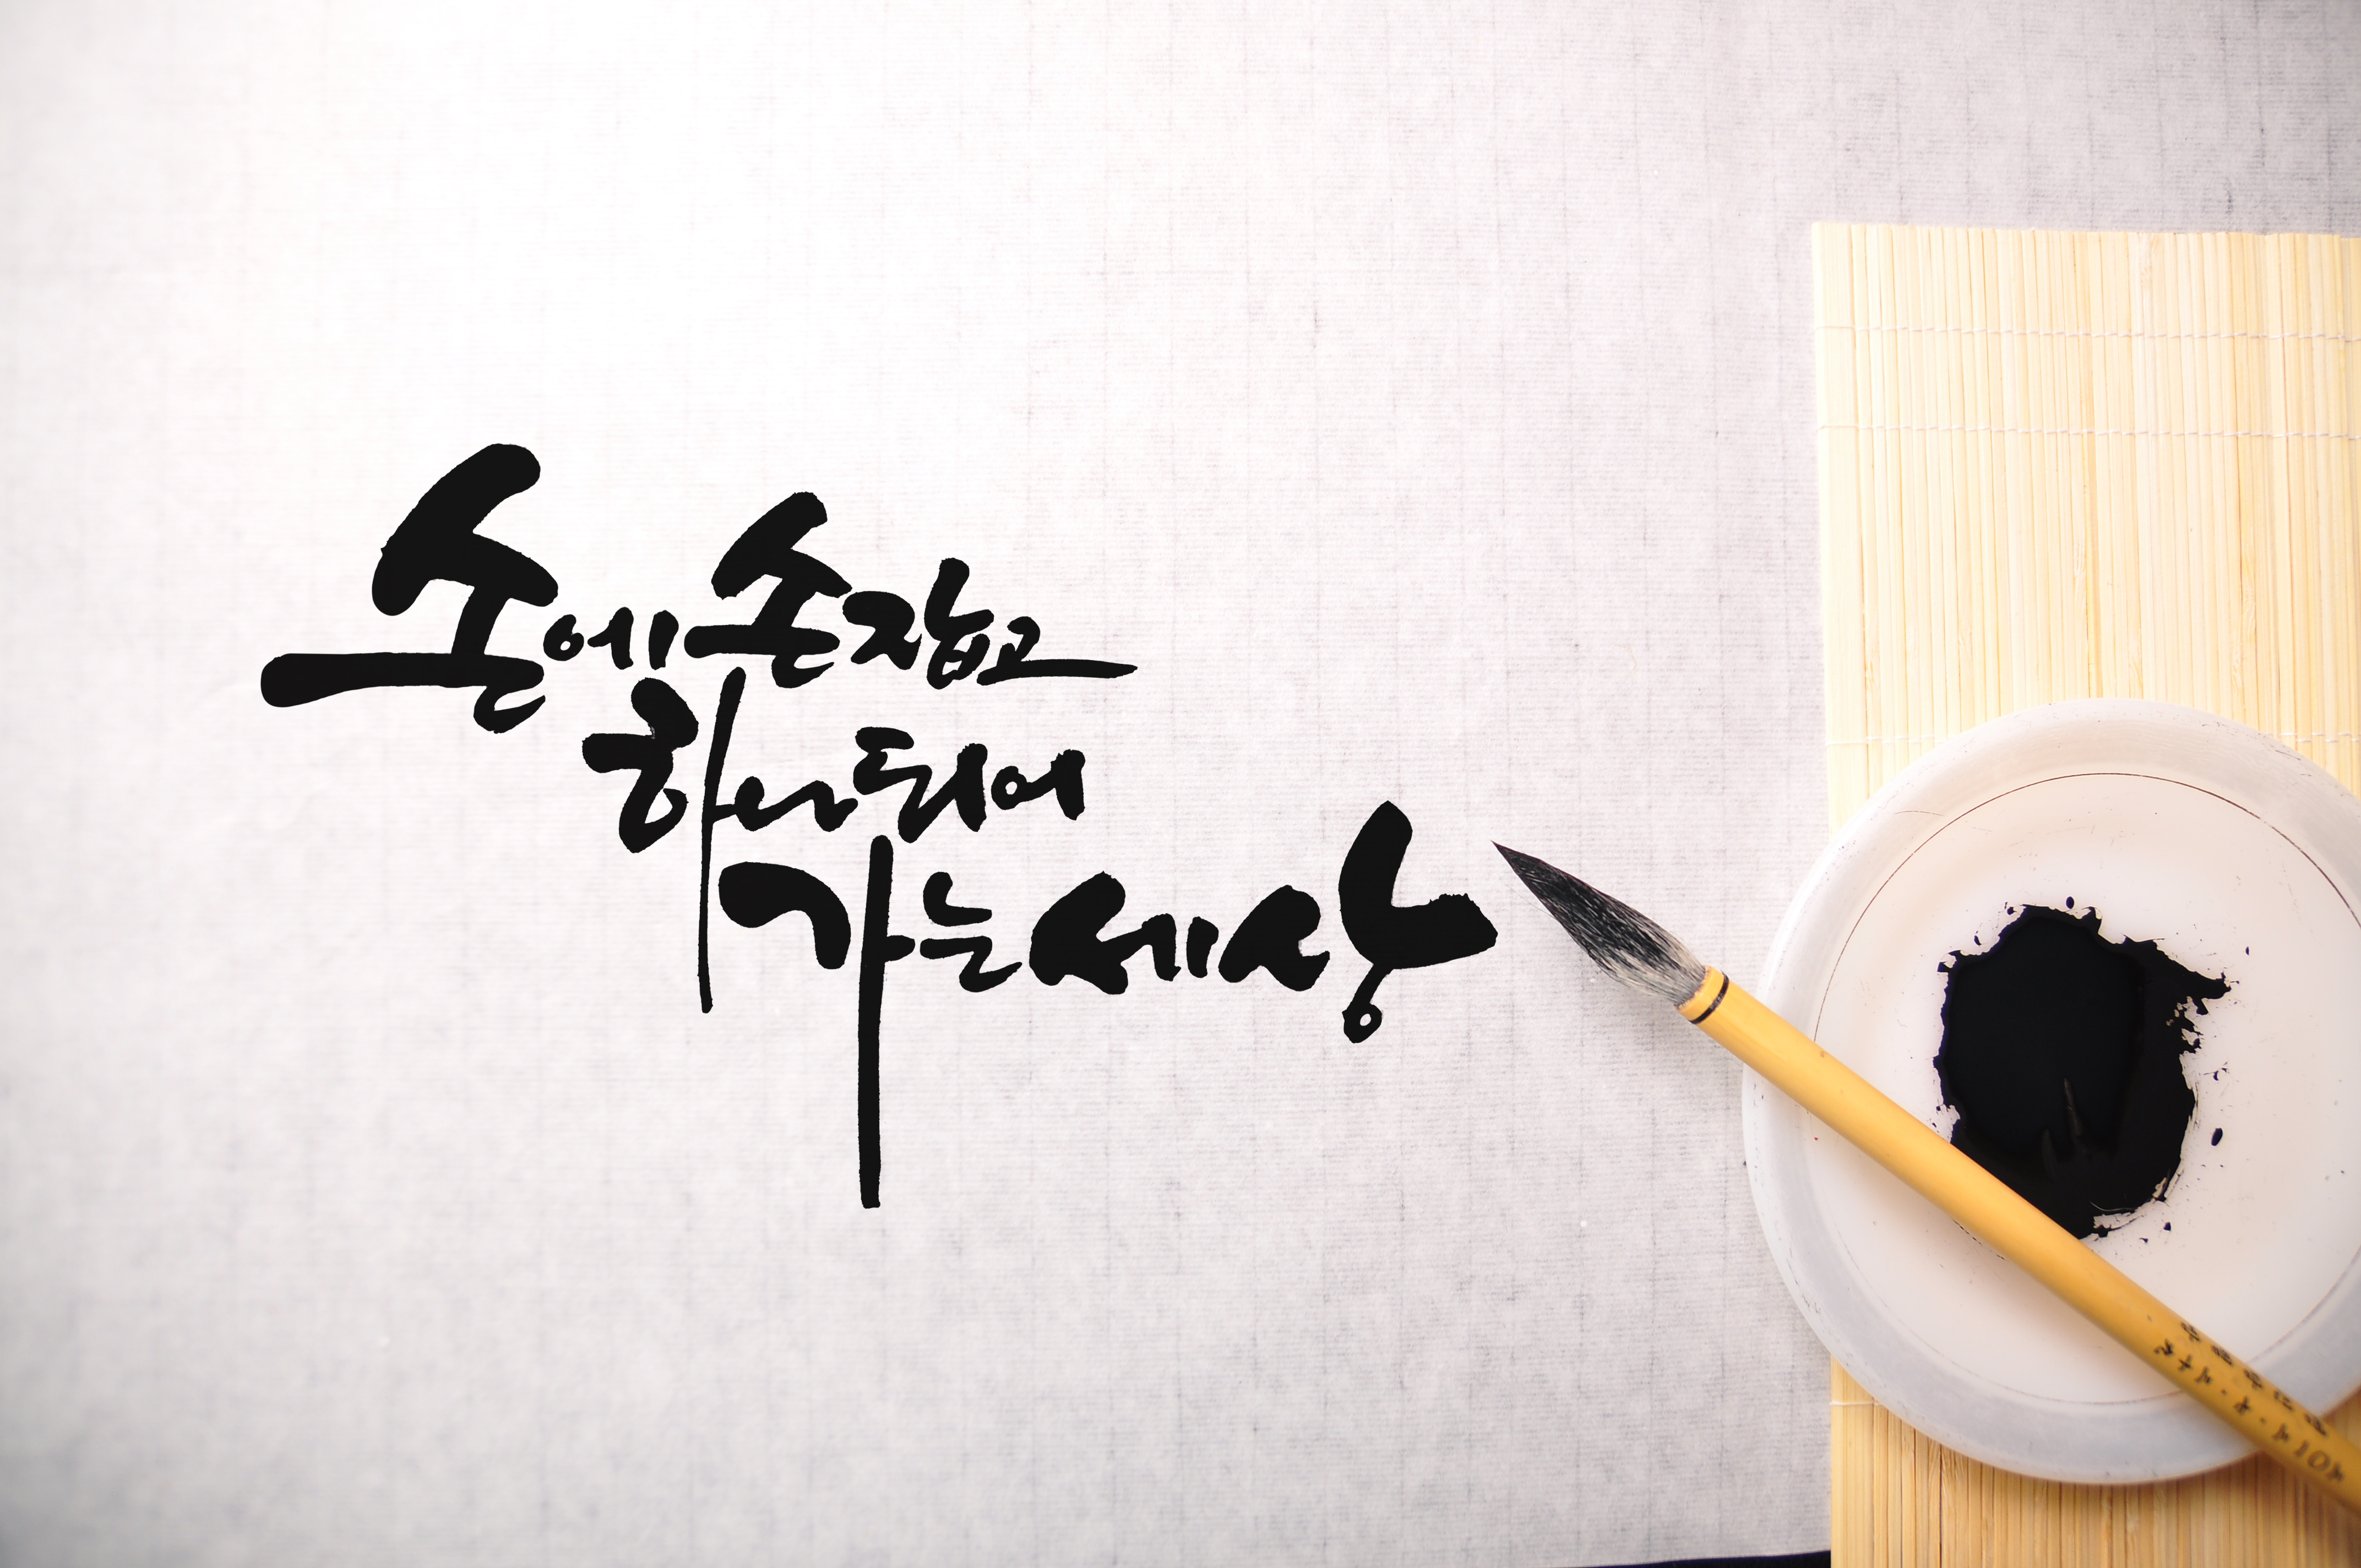 손에 손잡고
하나되어
가는 세상